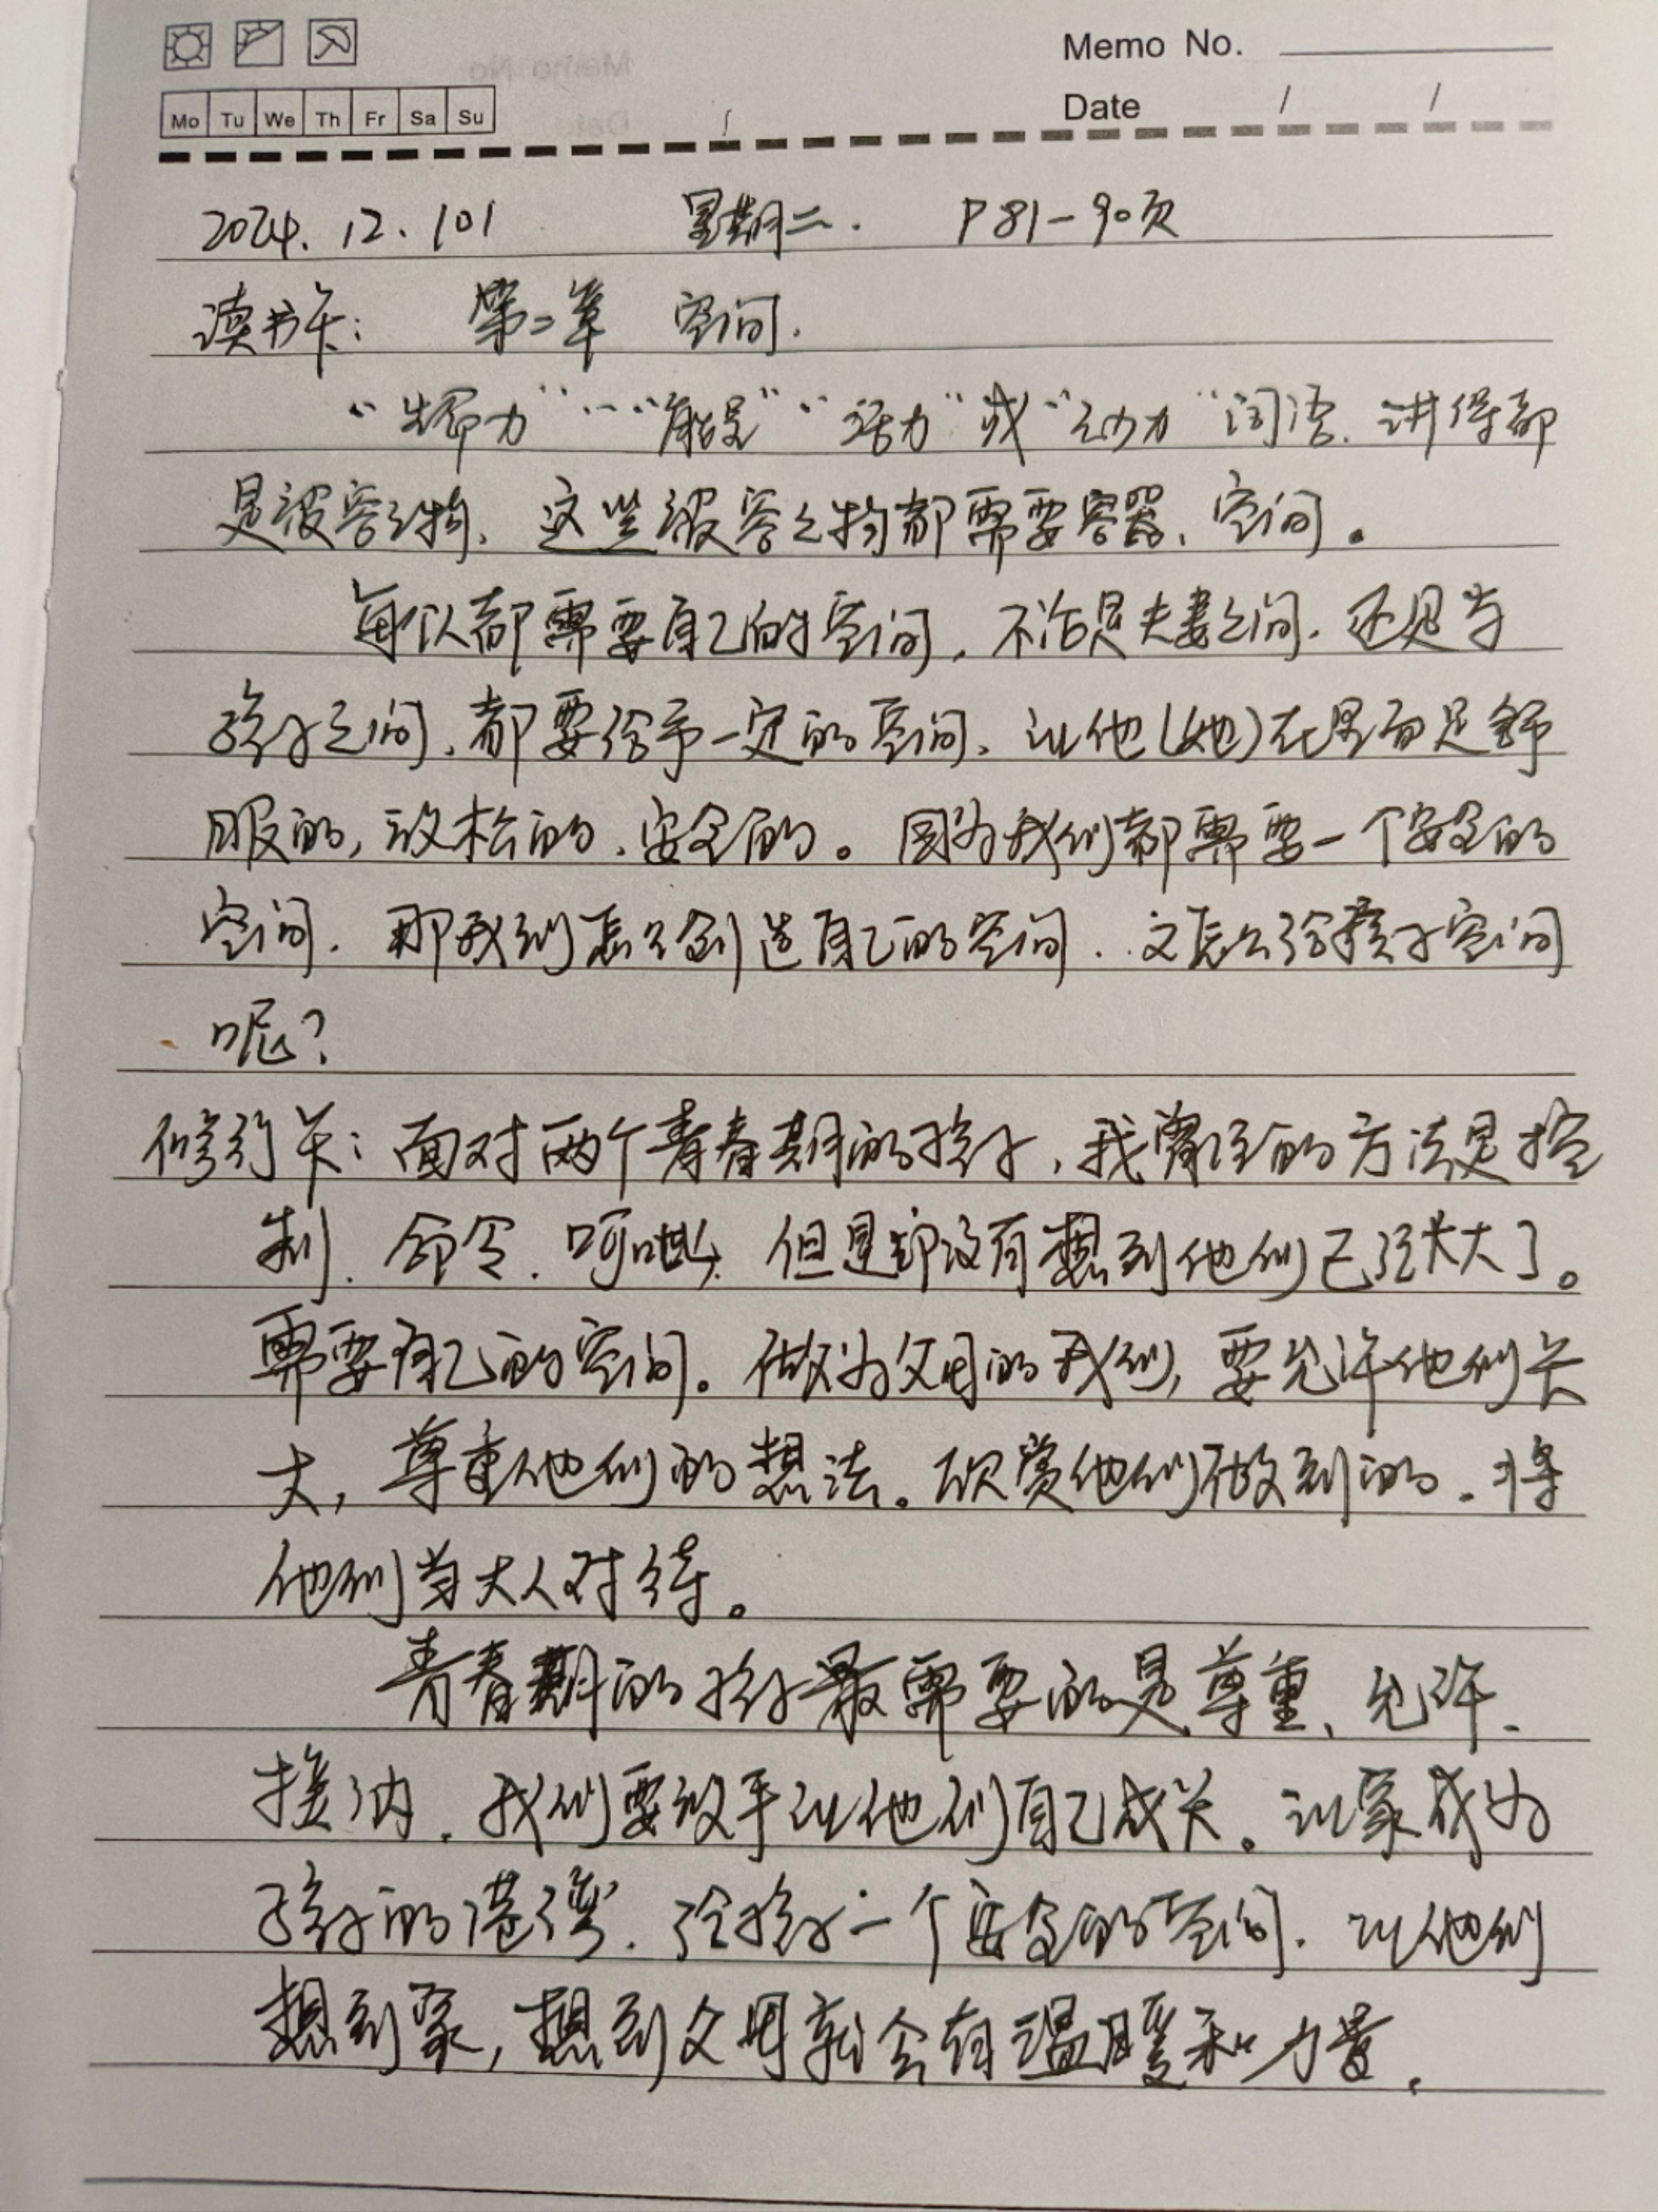 Memo No.
Mo Tu We Th Fr Sa Su
Date / /
2024.12.101 星期二. P81-90页
读书卡: 第二章 空间.
“生命力”“能量”“活力”或“动力”词语.讲得都
是被容之物,这些被容之物都需要容器、空间。
每个人都需要自己的空间,不论是夫妻之间.还是与
孩子之间,都要给予一定的空间,让他(她)在里面是舒
服的,放松的、安全的。因为我们都需要一个安全的
空间.那我们怎么创造自己的空间.又怎么给孩子空间
呢?
修行卡:面对两个青春期的孩子,我曾经的方法是控
制.命令.呵叱,但是却没有想到他们已经长大了。
需要自己的空间。做为父母的我们,要允许他们长
大,尊重他们的想法。欣赏他们做到的.将
他们当大人对待。
青春期的孩子最需要的是尊重、允许、
接纳.我们要放手让他们自己成长。让家成为
孩子的港湾.给孩子一个安全的空间.让他们
想到家,想到父母就会有温暖和力量.